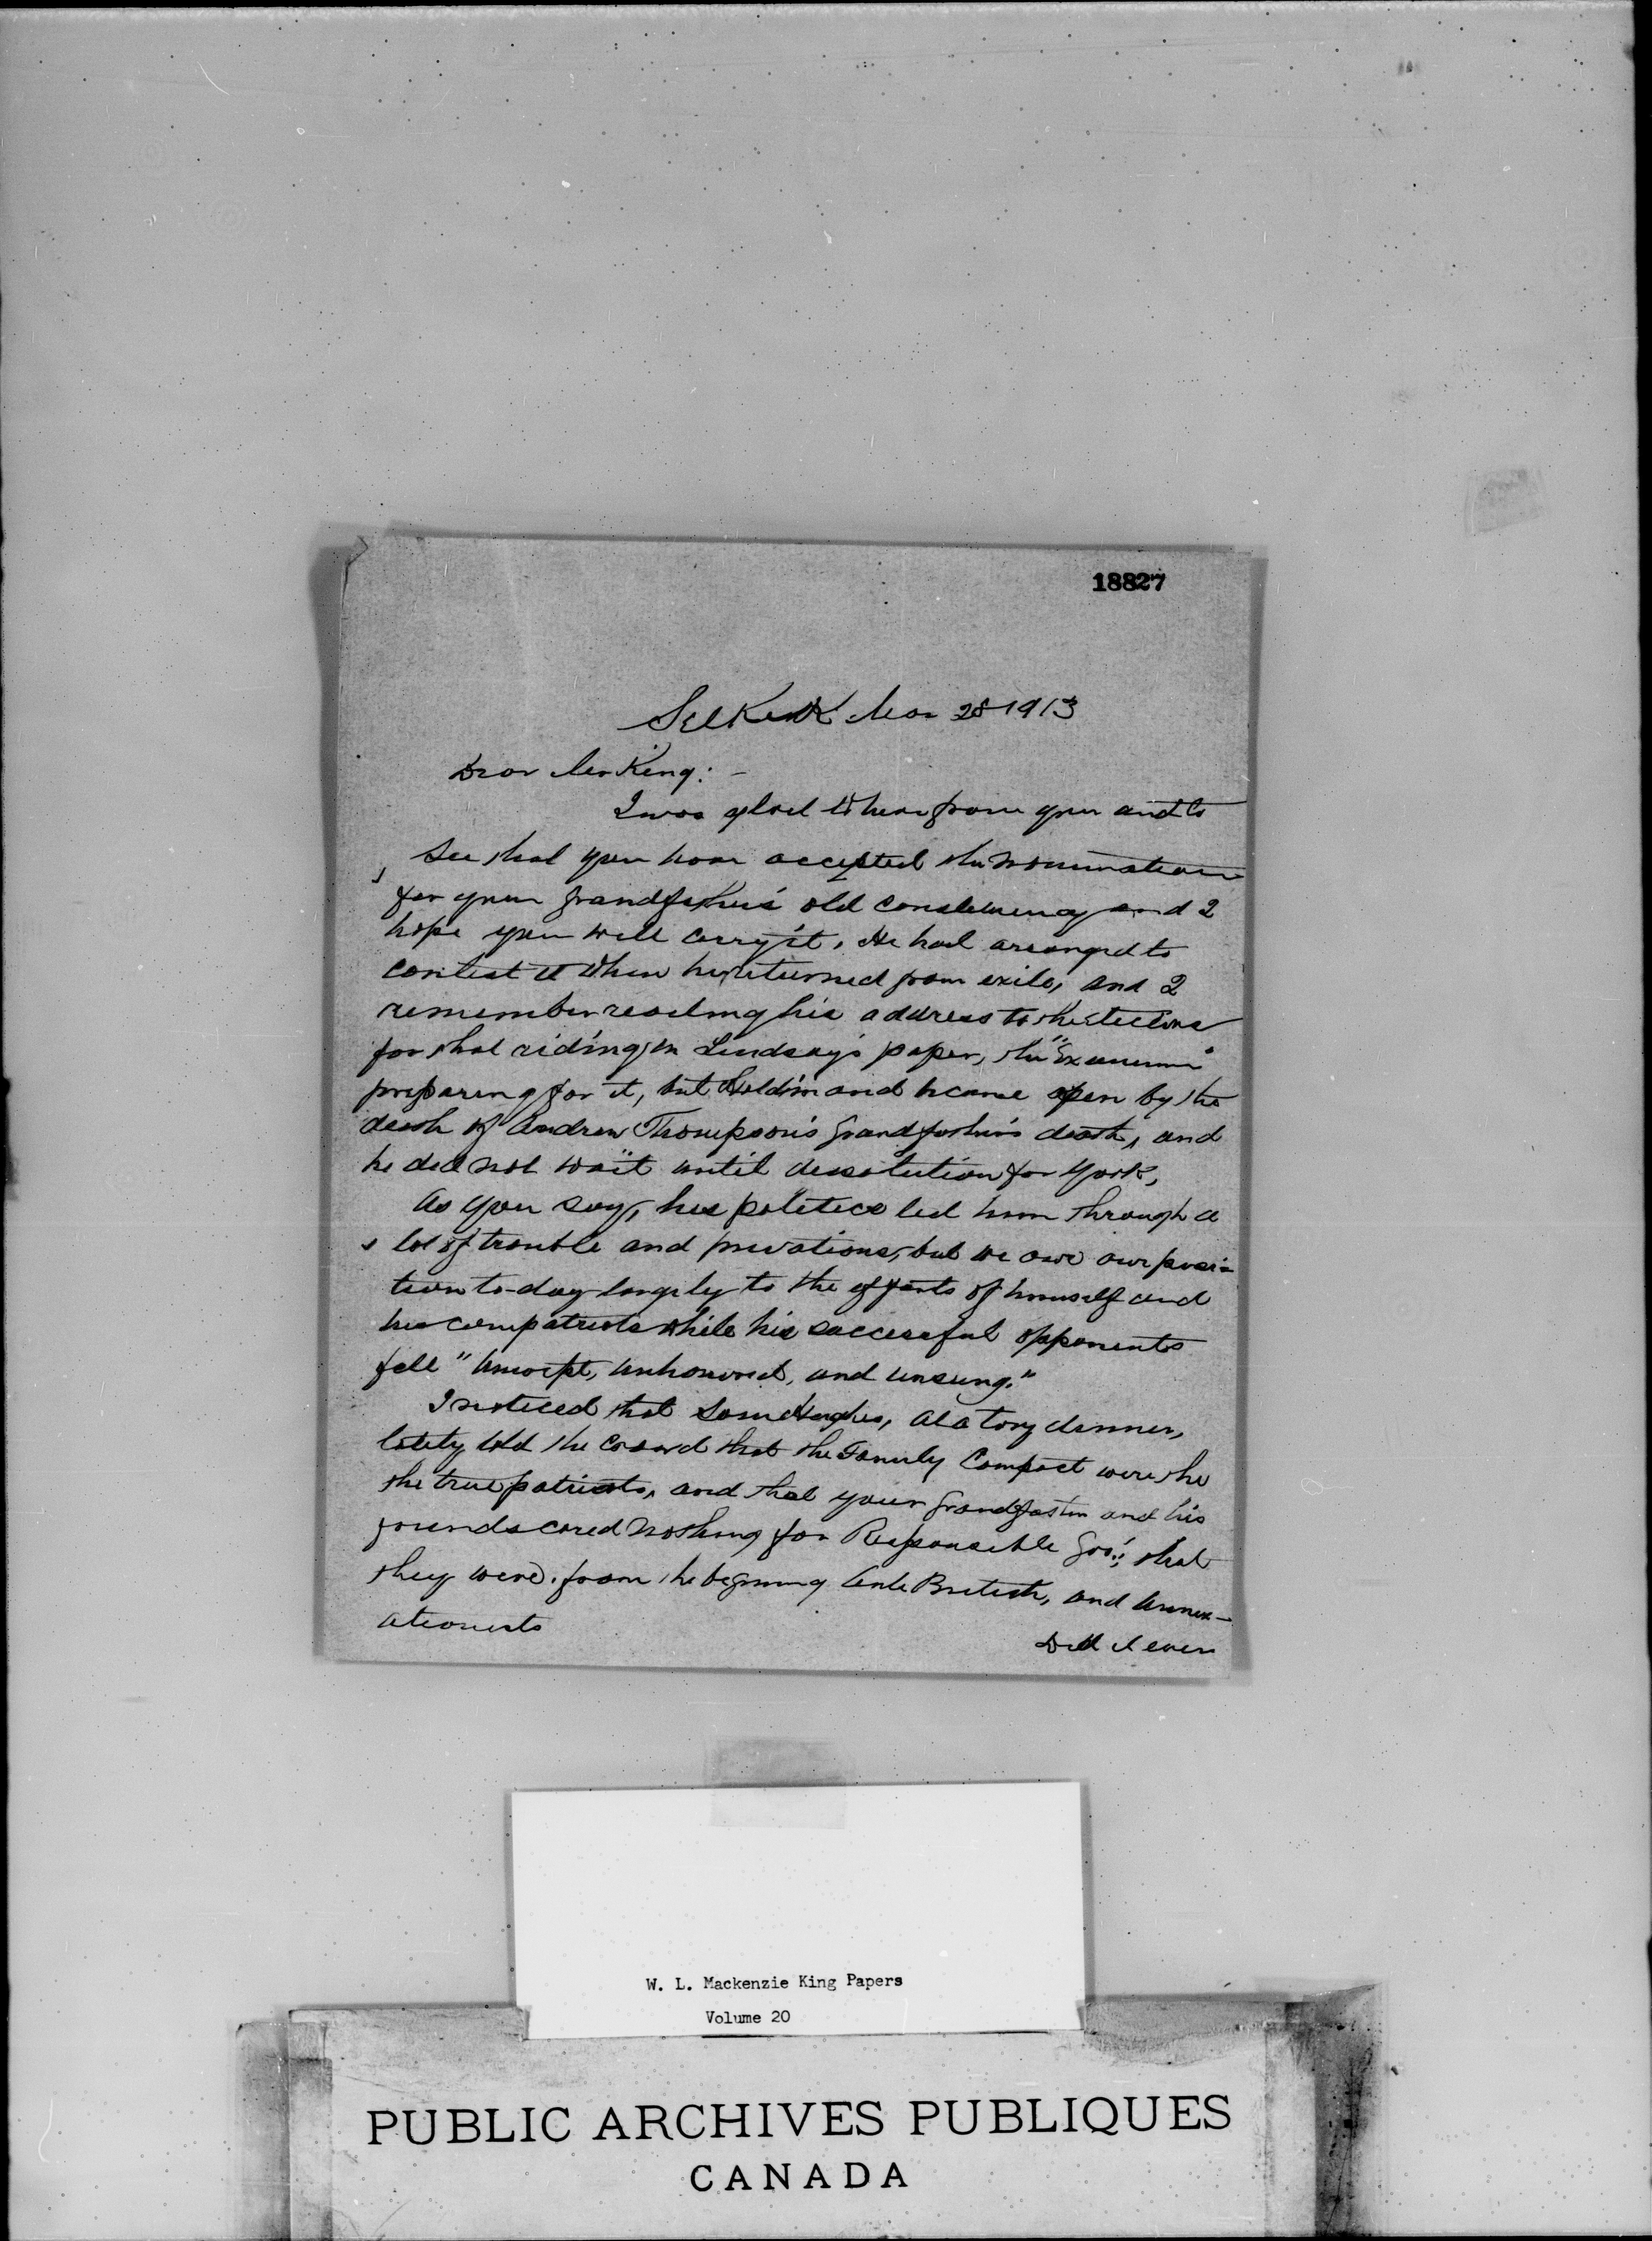 18827
Selkirk Mar 28 1913
Dear Mr King: -
I was glad to hear from you and to
see that you have accepted the nomination
for your grandfather's old constituency and I
hope you will carry it. He had arranged to
contest it when he returned from exile, and I
remember reading his address to the electors
for that riding in Lindsay's paper, the "Examiner"
preparing for it, but Haldimand became open by the
death of Andrew Thompson's grandfather's death, and
he did not wait until dissolution for York.
As you say, his politics led him through a
lot of trouble and privations, but we owe our posi-
tion to-day largely to the efforts of himself and
his compatriots while his successful opponents
fell "unwept, unhonored, and unsung."
I noticed that Sam Hughes, at a tory dinner,
lately told the crowd that the Family Compact were the
the true patriots, and that your grandfather and his
friends cared nothing for Responsible Gov't; that
they were from the beginning Anti British, and annex-
ationists
Did it ever
W. L. Mackenzie King Papers
Volume 20
PUBLIC ARCHIVES PUBLIQUES
CANADA